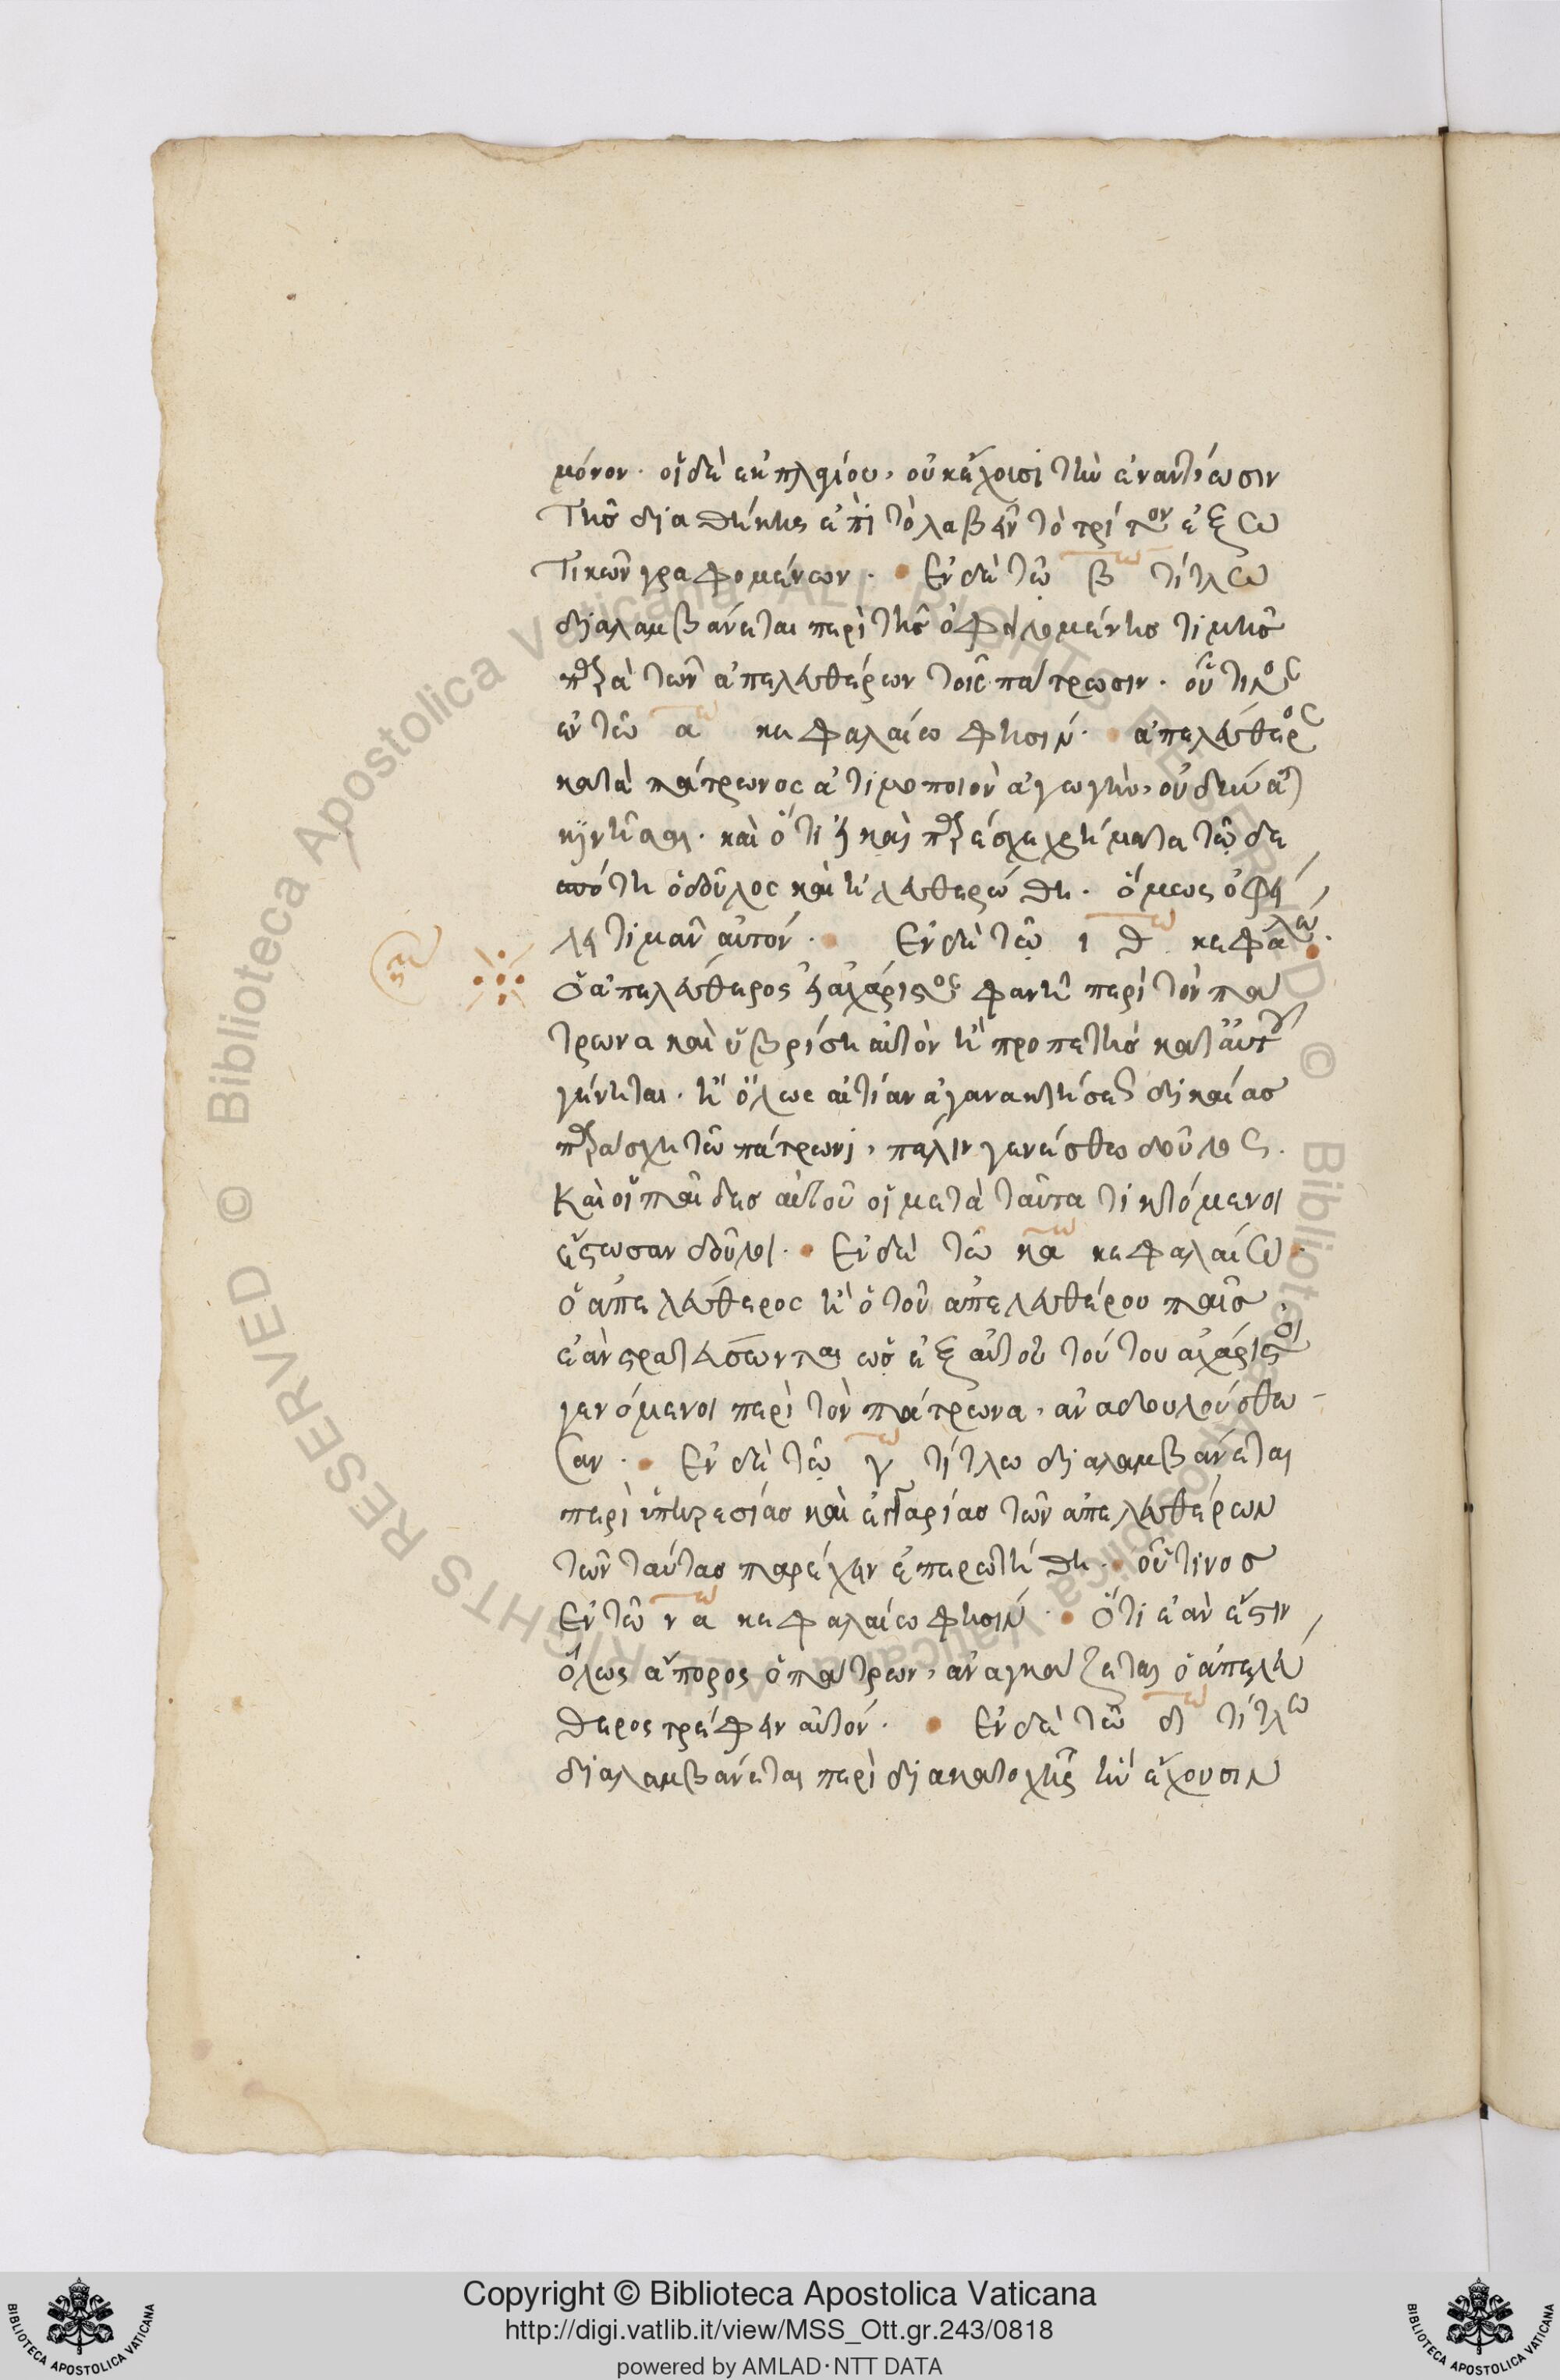 μόνον. οἱ δὲ ἐκ πλαγίου, οὐκ ἔχουσι τὴν ἐναντίωσιν
τῆς διαθήκης ἐπὶ τὸ λαβεῖν τὸ τρίτον ἐξω
τικῶν γραφομένων. Ἐν δὲ τῷ β τίτλω
διαλαμβάνεται περὶ τῆς ὀφειλομένης τιμῆς
παρὰ τῶν ἀπελευθέρων τοῖς πάτρωσιν. οὗτινος
ἐν τῶ α κεφαλαίω φησίν. ἀπελεύθερος
κατὰ πάτρωνος ἀτιμοποιὸν ἀγωγὴν, οὐ δύναται
κινῆσαι. καὶ ὅτι εἰ καὶ παρέσχε χρήματα τῷ δε
σπότη ὁ δοῦλος καὶ ἠλευθερώθη. ὅμως ὀφεί
λει τιμᾶν αὐτόν. Ἐν δὲ τῶ ιθ κεφαλαίω.
ὁ ἀπελεύθερος εἰ ἀχάριστος φανῆ περὶ τὸν πά
τρωνα καὶ ὑβρίση αὐτὸν ἢ προπετὴς κατ' αὐτοῦ
γένηται. ἢ ὅλως αἰτίαν ἀγανακτήσεως δικαίας
παράσχη τῶ πάτρωνι, πάλιν γενέσθω δοῦλος.
Καὶ οἱ παῖδες αὐτοῦ οἱ μετὰ ταῦτα τικτόμενοι
ἔστωσαν δοῦλοι. Ἐν δὲ τῶ κα κεφαλαίω.
ὁ ἀπελεύθερος ἢ ὁ τοῦ ἀπελευθέρου παῖς.
ἐὰν στρατεύσωνται ὡς ἐξ αὐτοῦ τούτου ἀχάριστοι
γενόμενοι περὶ τὸν πάτρωνα, ἀναδουλούσθω-
σαν. Ἐν δὲ τῷ γ τίτλω διαλαμβάνεται
περὶ ὑπηρεσίας καὶ ἀγγαρίας τῶν ἀπελευθέρων
τῶν ταύτας παρέχειν ἐπερωτήθη. οὗτινος
Ἐν τῶ να κεφαλαίω φησίν. Ὅτι ἐὰν ἔστιν
ὅλως ἄπορος ὁ πάτρων, ἀναγκάζεται ὁ ἀπελεύ
θερος τρέφειν αὐτόν. Ἐν δὲ τῶ δ τίτλω
διαλαμβάνεται περὶ διακατοχῆς ἣν ἔχουσιν
Copyright © Biblioteca Apostolica Vaticana
http://digi.vatlib.it/view/MSS_Ott.gr.243/0818
powered by AMLAD·NTT DATA